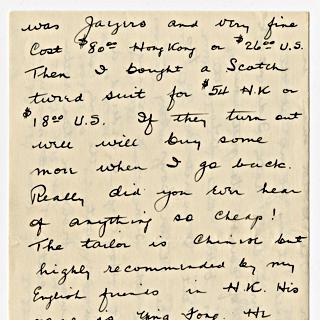 was Jaegers and very fine
Cost $80.00 Hong Kong or $26.00 U.S.
Then I bought a Scotch
tweed suit for $54 H.K or
$18.00 U.S. If they turn out
well will buy some
more when I go back.
Really did you ever hear
of anything so cheap!
The tailor is Chinese but
highly recommended by my
English friends in H.K. His
name is Fong. He